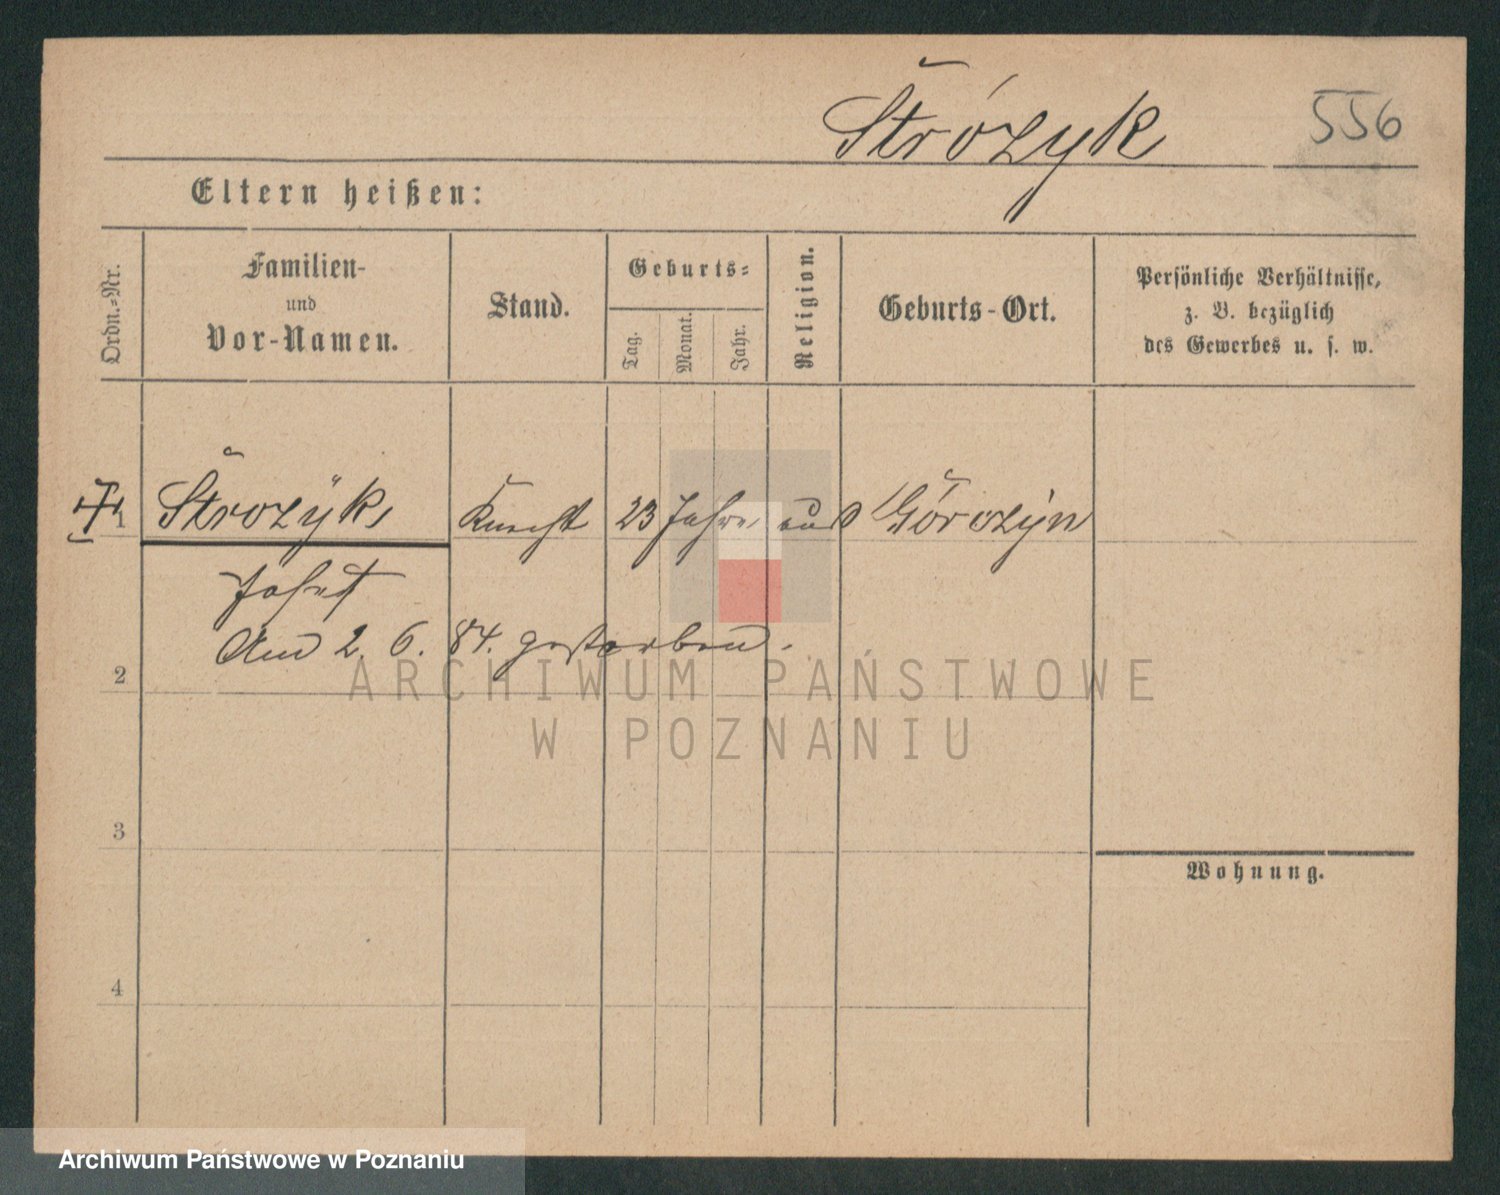 Strózyk 556
Eltern heißen:
Ordn.-Nr.
Familien-
und
Vor-Namen.
Stand.
Geburts-
Tag.
Monat.
Jahr.
Religion.
Geburts-Ort.
Persönliche Verhältnisse,
z. B. bezüglich
des Gewerbes u. s. w.
1 Strozÿk, Knecht 23 Jahre aus Górozÿn
Am 2. 6. 84. gestorben.
2
ARCHIWUM PAŃSTWOWE
W POZNANIU
3
Wohnung.
4
Archiwum Państwowe w Poznaniu